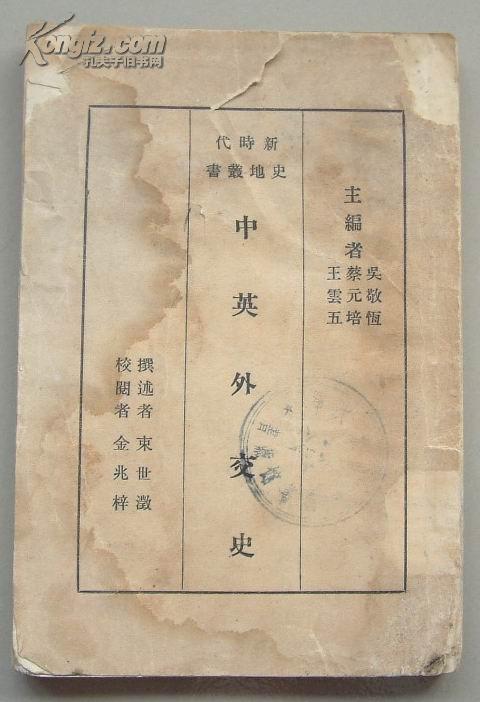 Kongfz.com
孔夫子旧书网
主編者
吳敬恆
蔡元培
王雲五
新時代
史地叢書
中英外交史
撰述者束世澂
校閱者金兆梓